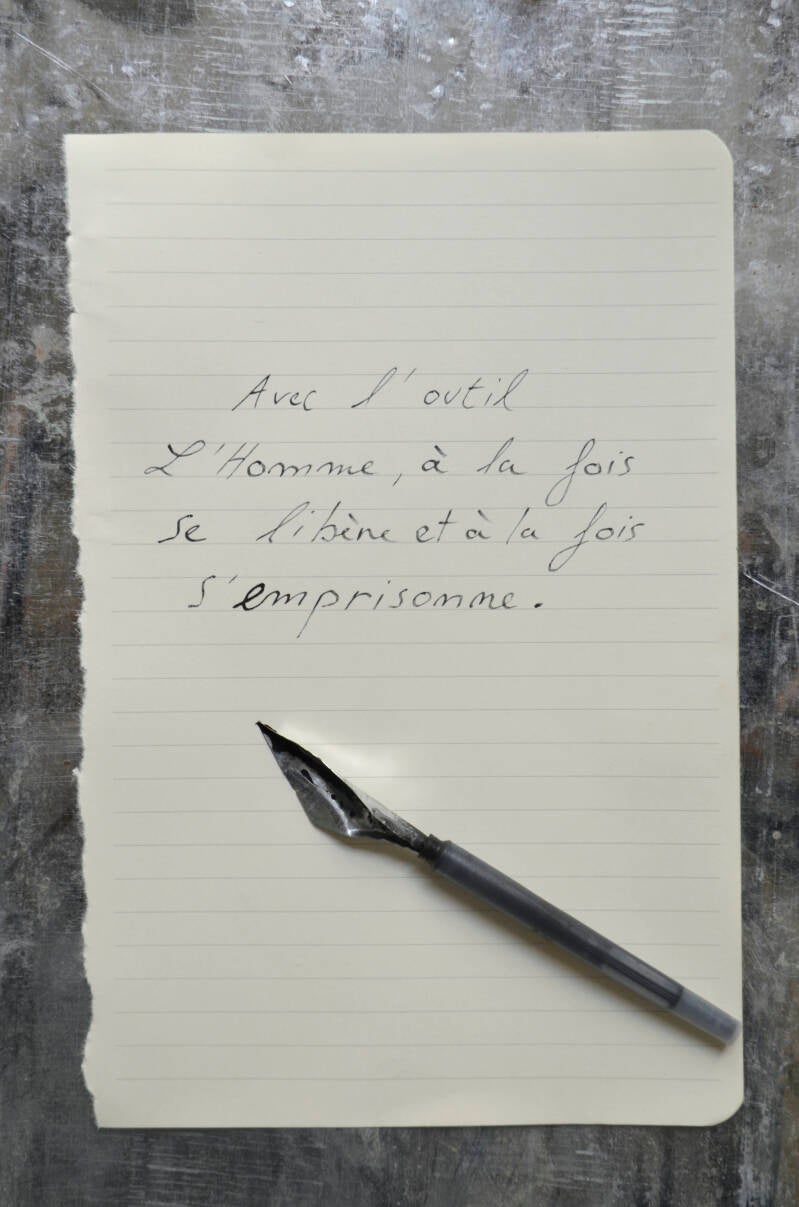 Avec l'outil
L'Homme, à la fois
se libère et à la fois
s'emprisonne.